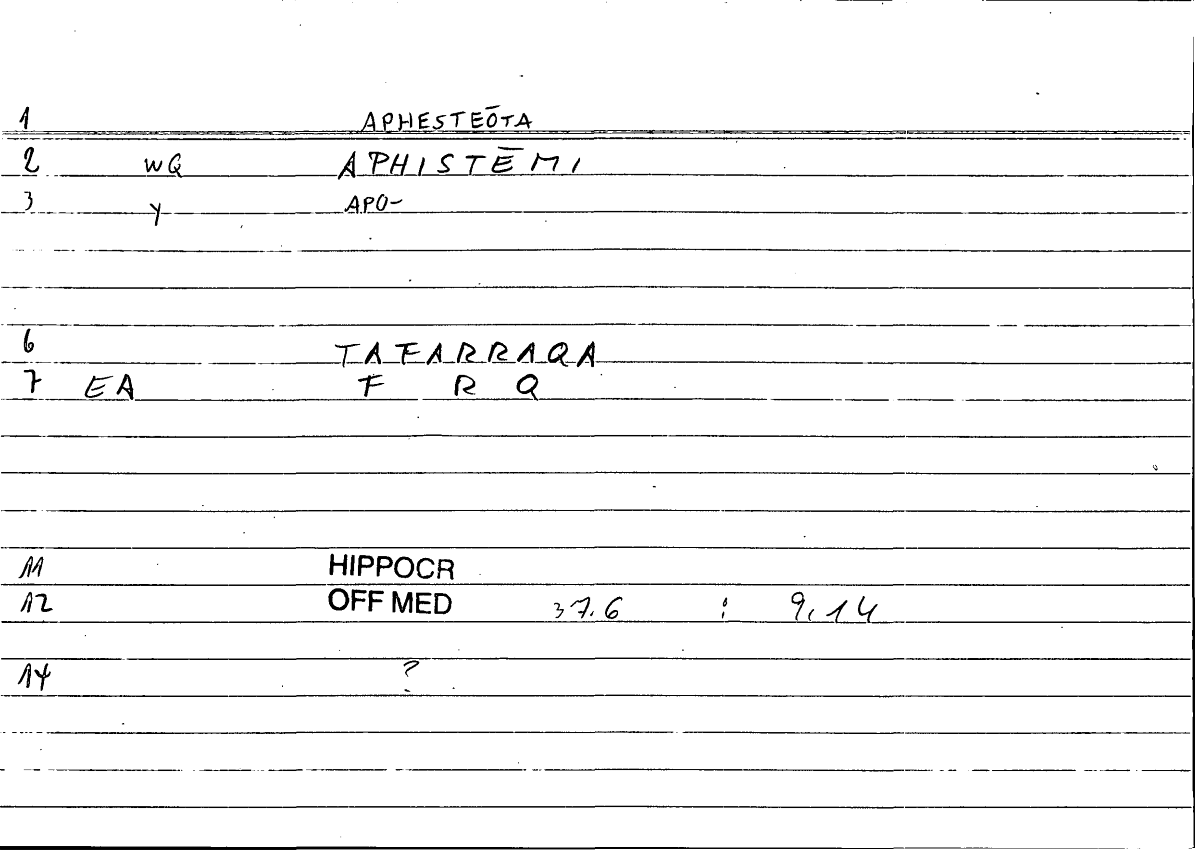 1 APHESTEŌTA
2 WQ APHISTĒMI
3 Y APO-
6 TAFARRAQA
7 EA F R Q
11 HIPPOCR
12 OFF MED 37.6 : 9,14
14 ?